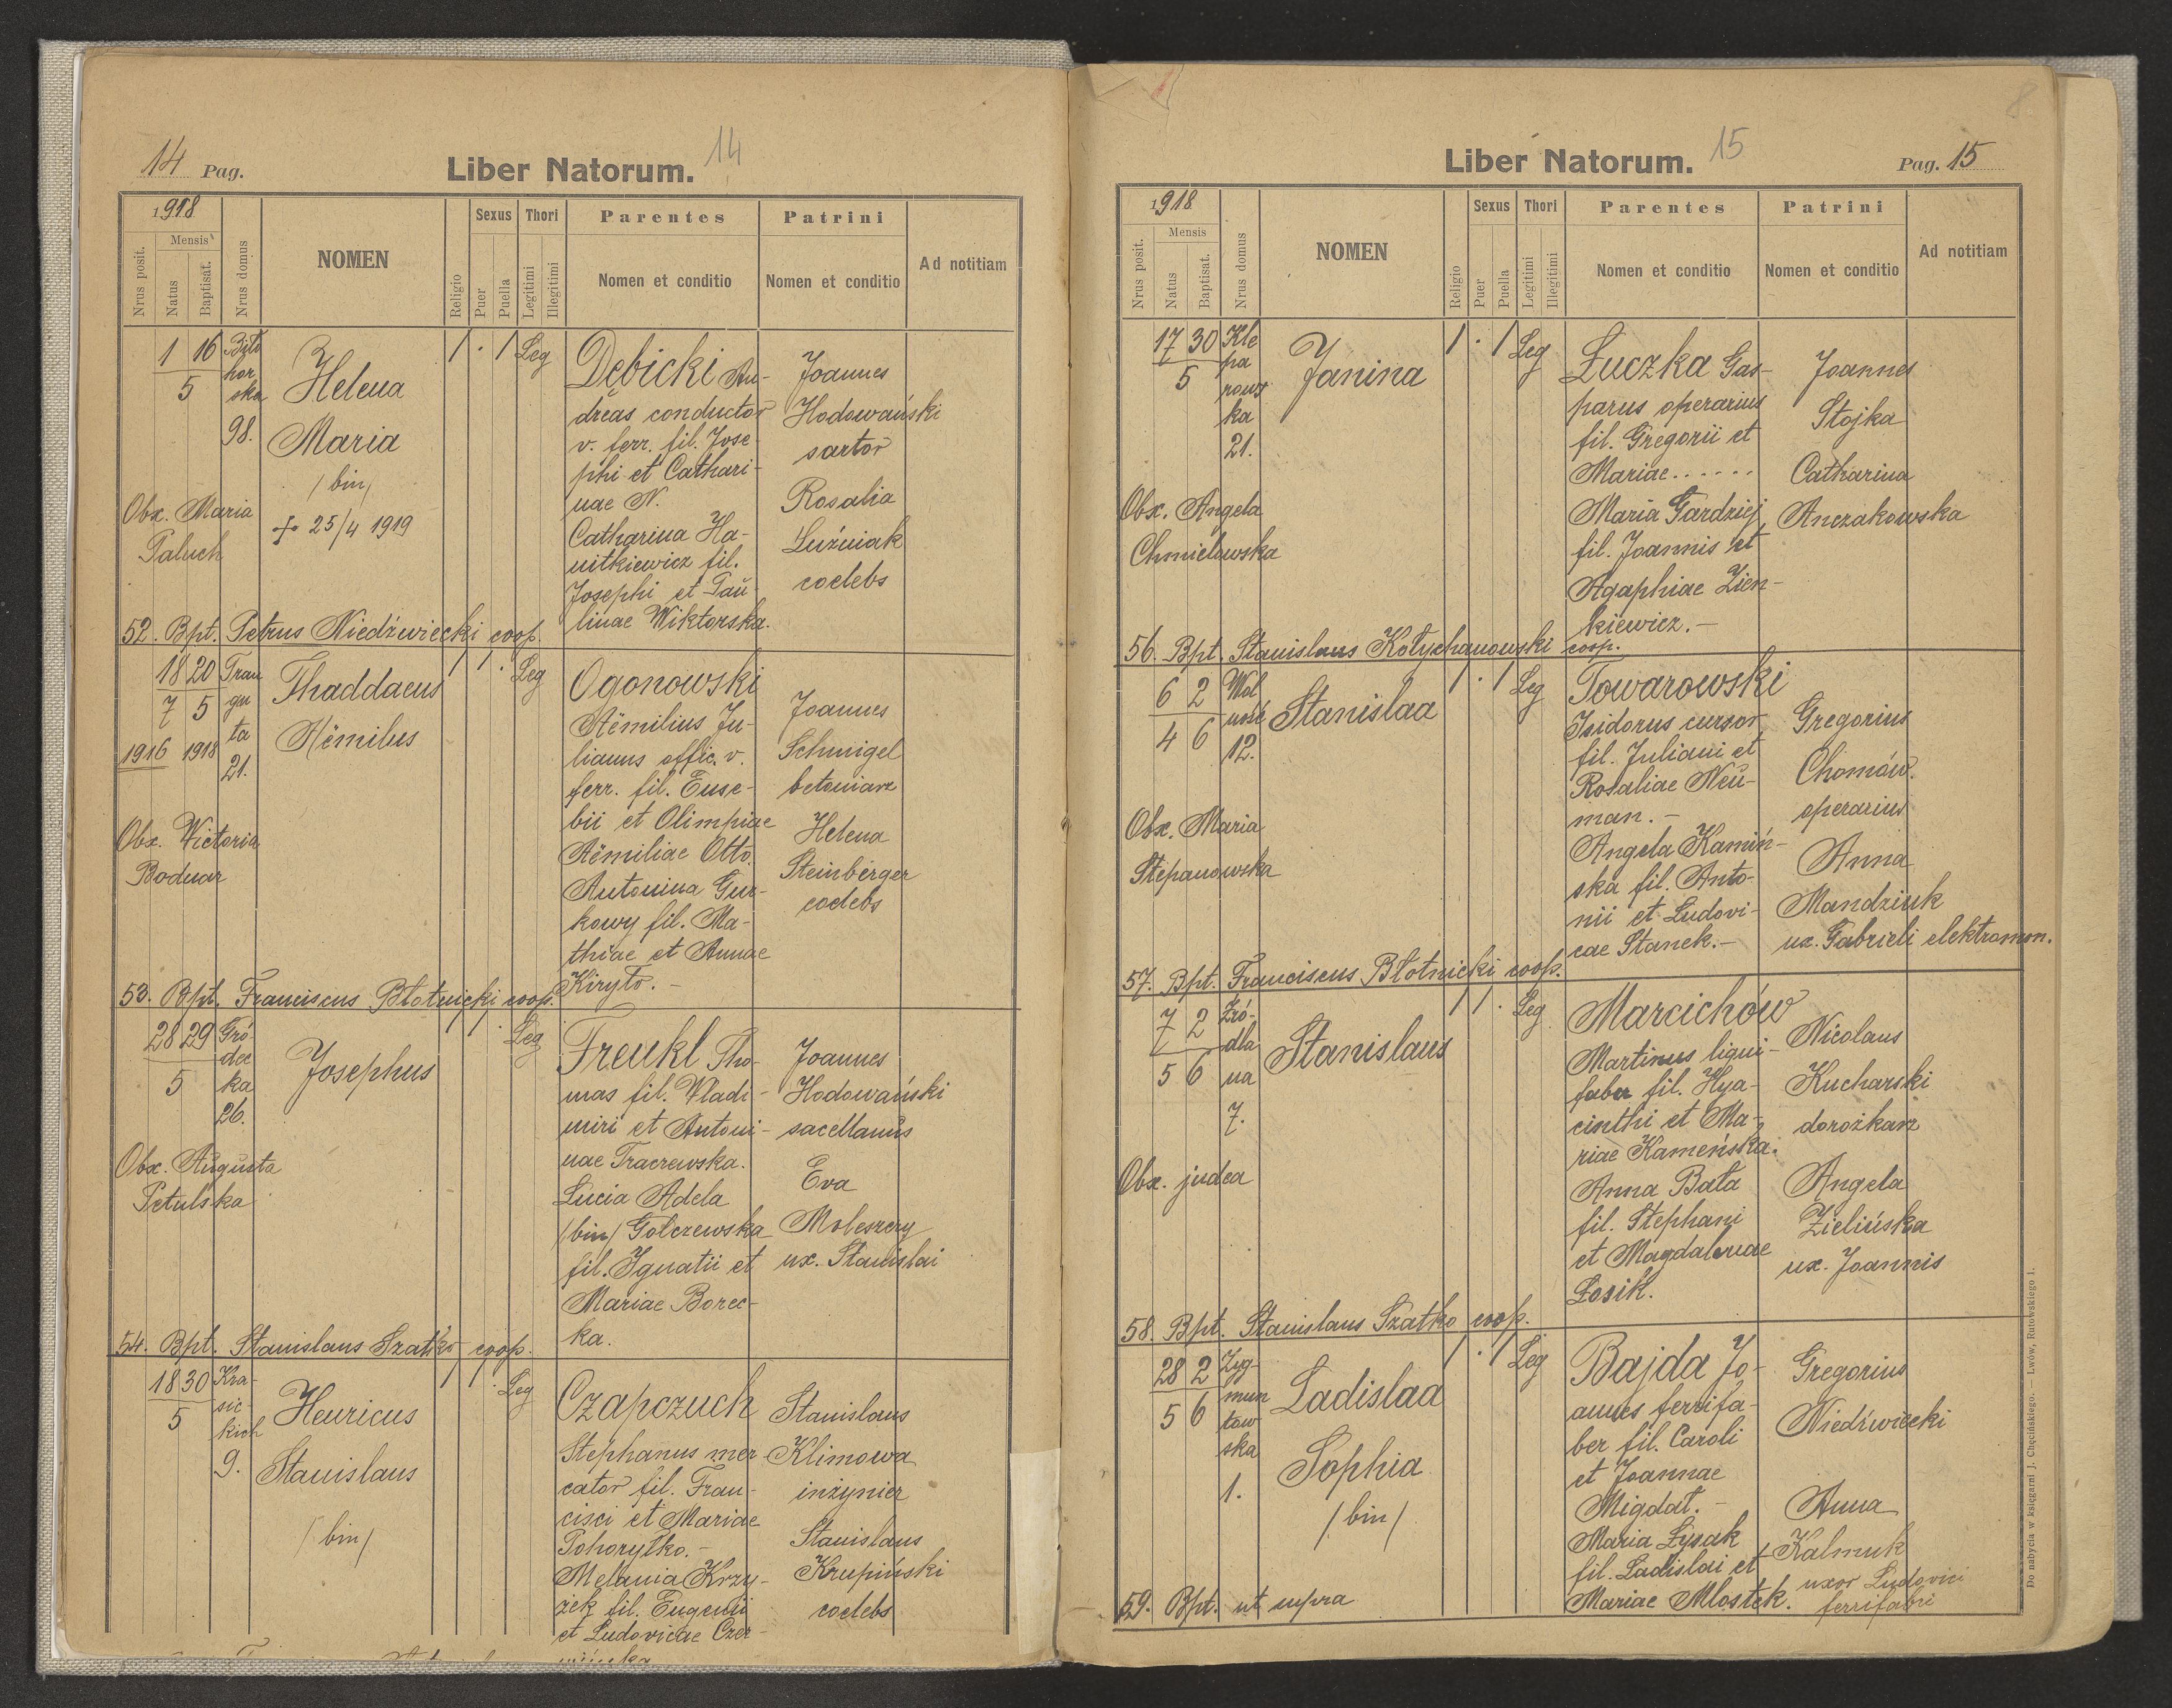 14 Pag.
Liber Natorum.
14
1918
Nrus posit.
Mensis
Natus
Baptisat.
Nrus domus
NOMEN
Religio
Sexus
Puer
Puella
Thori
Legitimi
Illegitimi
Parentes
Nomen et conditio
Patrini
Nomen et conditio
Ad notitiam
1 16
5
hor
ska
98.
Helena
Maria
/bin/
+ 25/4 1919
Obx. Maria
Paluch
1 . 1 Leg
Debicki An-
dreas conductor
v. ferr. fil. Jose-
phi et Cathari-
nae N.
Catharina Ha-
nitkiewicz fil.
Josephi et Pau
linae Wiktorska.
Joannes
Hodowański
sartor
Rosalia
Luźniak
coelebs
52. Bpt. Petrus Niedźwiecki coop.
18 20
7 5
1916 1918
Trau
gu
ta
21.
Thaddaeus
Aëmilus
Obx. Wictoria
Bodnar
1 1 . Leg
Ogonowski
Aëmilius Ju-
lianus offic. v.
ferr. fil. Euse-
bii et Olimpiae
Aëmiliae Otto.
Antonina Gur-
kowy fil. Ma-
thiae et Annae
Kiryto. -
Joannes
Schmigel
betoniarz
Helena
Steinberger
coelebs
53. Bpt. Franciscus Błotnicki coop.
28 29
5
Gró-
dec
ka
26.
Josephus
Obx. Augusta
Petulska
1 1 . Leg
Frenkl Tho-
mas fil. Wladi-
miri et Antoni-
nae Traczewska.
Lucia Adela
/bin/ Golczewska
fil. Ignatii et
Mariae Borec-
ka.
Joannes
Hodowański
sacellanus
Eva
Moleszczy
ux. Stanislai
54. Bpt. Stanislaus Szatko coop.
18 30
5
Kra-
sic
kich
9.
Henricus
Stanislaus
/bin/
1 1 . Leg
Czapczuch
Stephanus mer
cator fil. Fran-
cisci et Mariae
Pohorytko. -
Melania Krzy-
zek fil. Eugenii
et Ludovicae Czer-
Stanislaus
Klimowa
inżynier
Stanislaus
Krupiński
coelebs
8
Liber Natorum.
15
Pag. 15
1918
Nrus posit.
Mensis
Natus
Baptisat.
Nrus domus
NOMEN
Religio
Sexus
Puer
Puella
Thori
Legitimi
Illegitimi
Parentes
Nomen et conditio
Patrini
Nomen et conditio
Ad notitiam
17 30
5
Kle
pa
rows
ka
21.
Janina
Obx. Angela
Chmielowska
1 . 1 Leg
Łuczka Gas-
parus operarius
fil. Gregorii et
Mariae......
Maria Gardziej
fil. Joannis et
Agaphiae Zien-
kiewicz. -
Joannes
Stojka
Catharina
Anczakowska
56. Bpt. Stanislaus Kołychanowski coop.
6 2
4 6
Wol
ność
12.
Stanislaa
Obx. Maria
Stepanowska
1 . 1 Leg
Towarowski
Isidorus cursor
fil. Juliani et
Rosaliae Neu-
man. -
Angela Kamiń-
ska fil. Anto-
nii et Ludovi-
cae Stanek. -
Gregorius
Chomów.
operarius
Anna
Mandziuk
ux. Gabrieli elektromon.
57. Bpt. Franciscus Błotnicki coop.
7 2
5 6
Zró-
dla
na
7.
Stanislaus
Obx. judea
1 1 . Leg
Marcichów
Martinus ligni-
faber fil. Hya-
cinthi et Ma-
riae Kameńska.
Anna Bała
fil. Stephani
et Magdalenae
Łosik.
Nicolaus
Kucharski
dorożkarz
Angela
Zielińska
ux. Joannis
58. Bpt. Stanislaus Szatko coop.
28 2
5 6
Zyg-
mun
tow
ska
1.
Ladislaa
Sophia
/bin/
1 . 1 Leg
Bajda Jo-
annes ferrifa-
ber fil. Caroli
et Joannae
Migdat. -
Maria Łysak
fil. Ladislai et
Mariae Mlostek.
Gregorius
Niedźwiecki
Anna
Kalmuk
uxor Ludovici
ferrifabri
59. Bpt. ut supra
Do nabycia w księgarni J. Chęcińskiego. — Lwów, Rutowskiego 1.